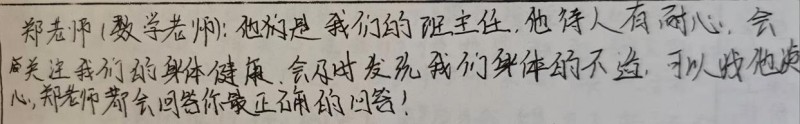 郑老师(数学老师):他们是我们的班主任.他待人有耐心.会
关注我们的身体健康.会及时发现我们身体的不适.可以找他谈
心,郑老师都会回答你最正确的回答!